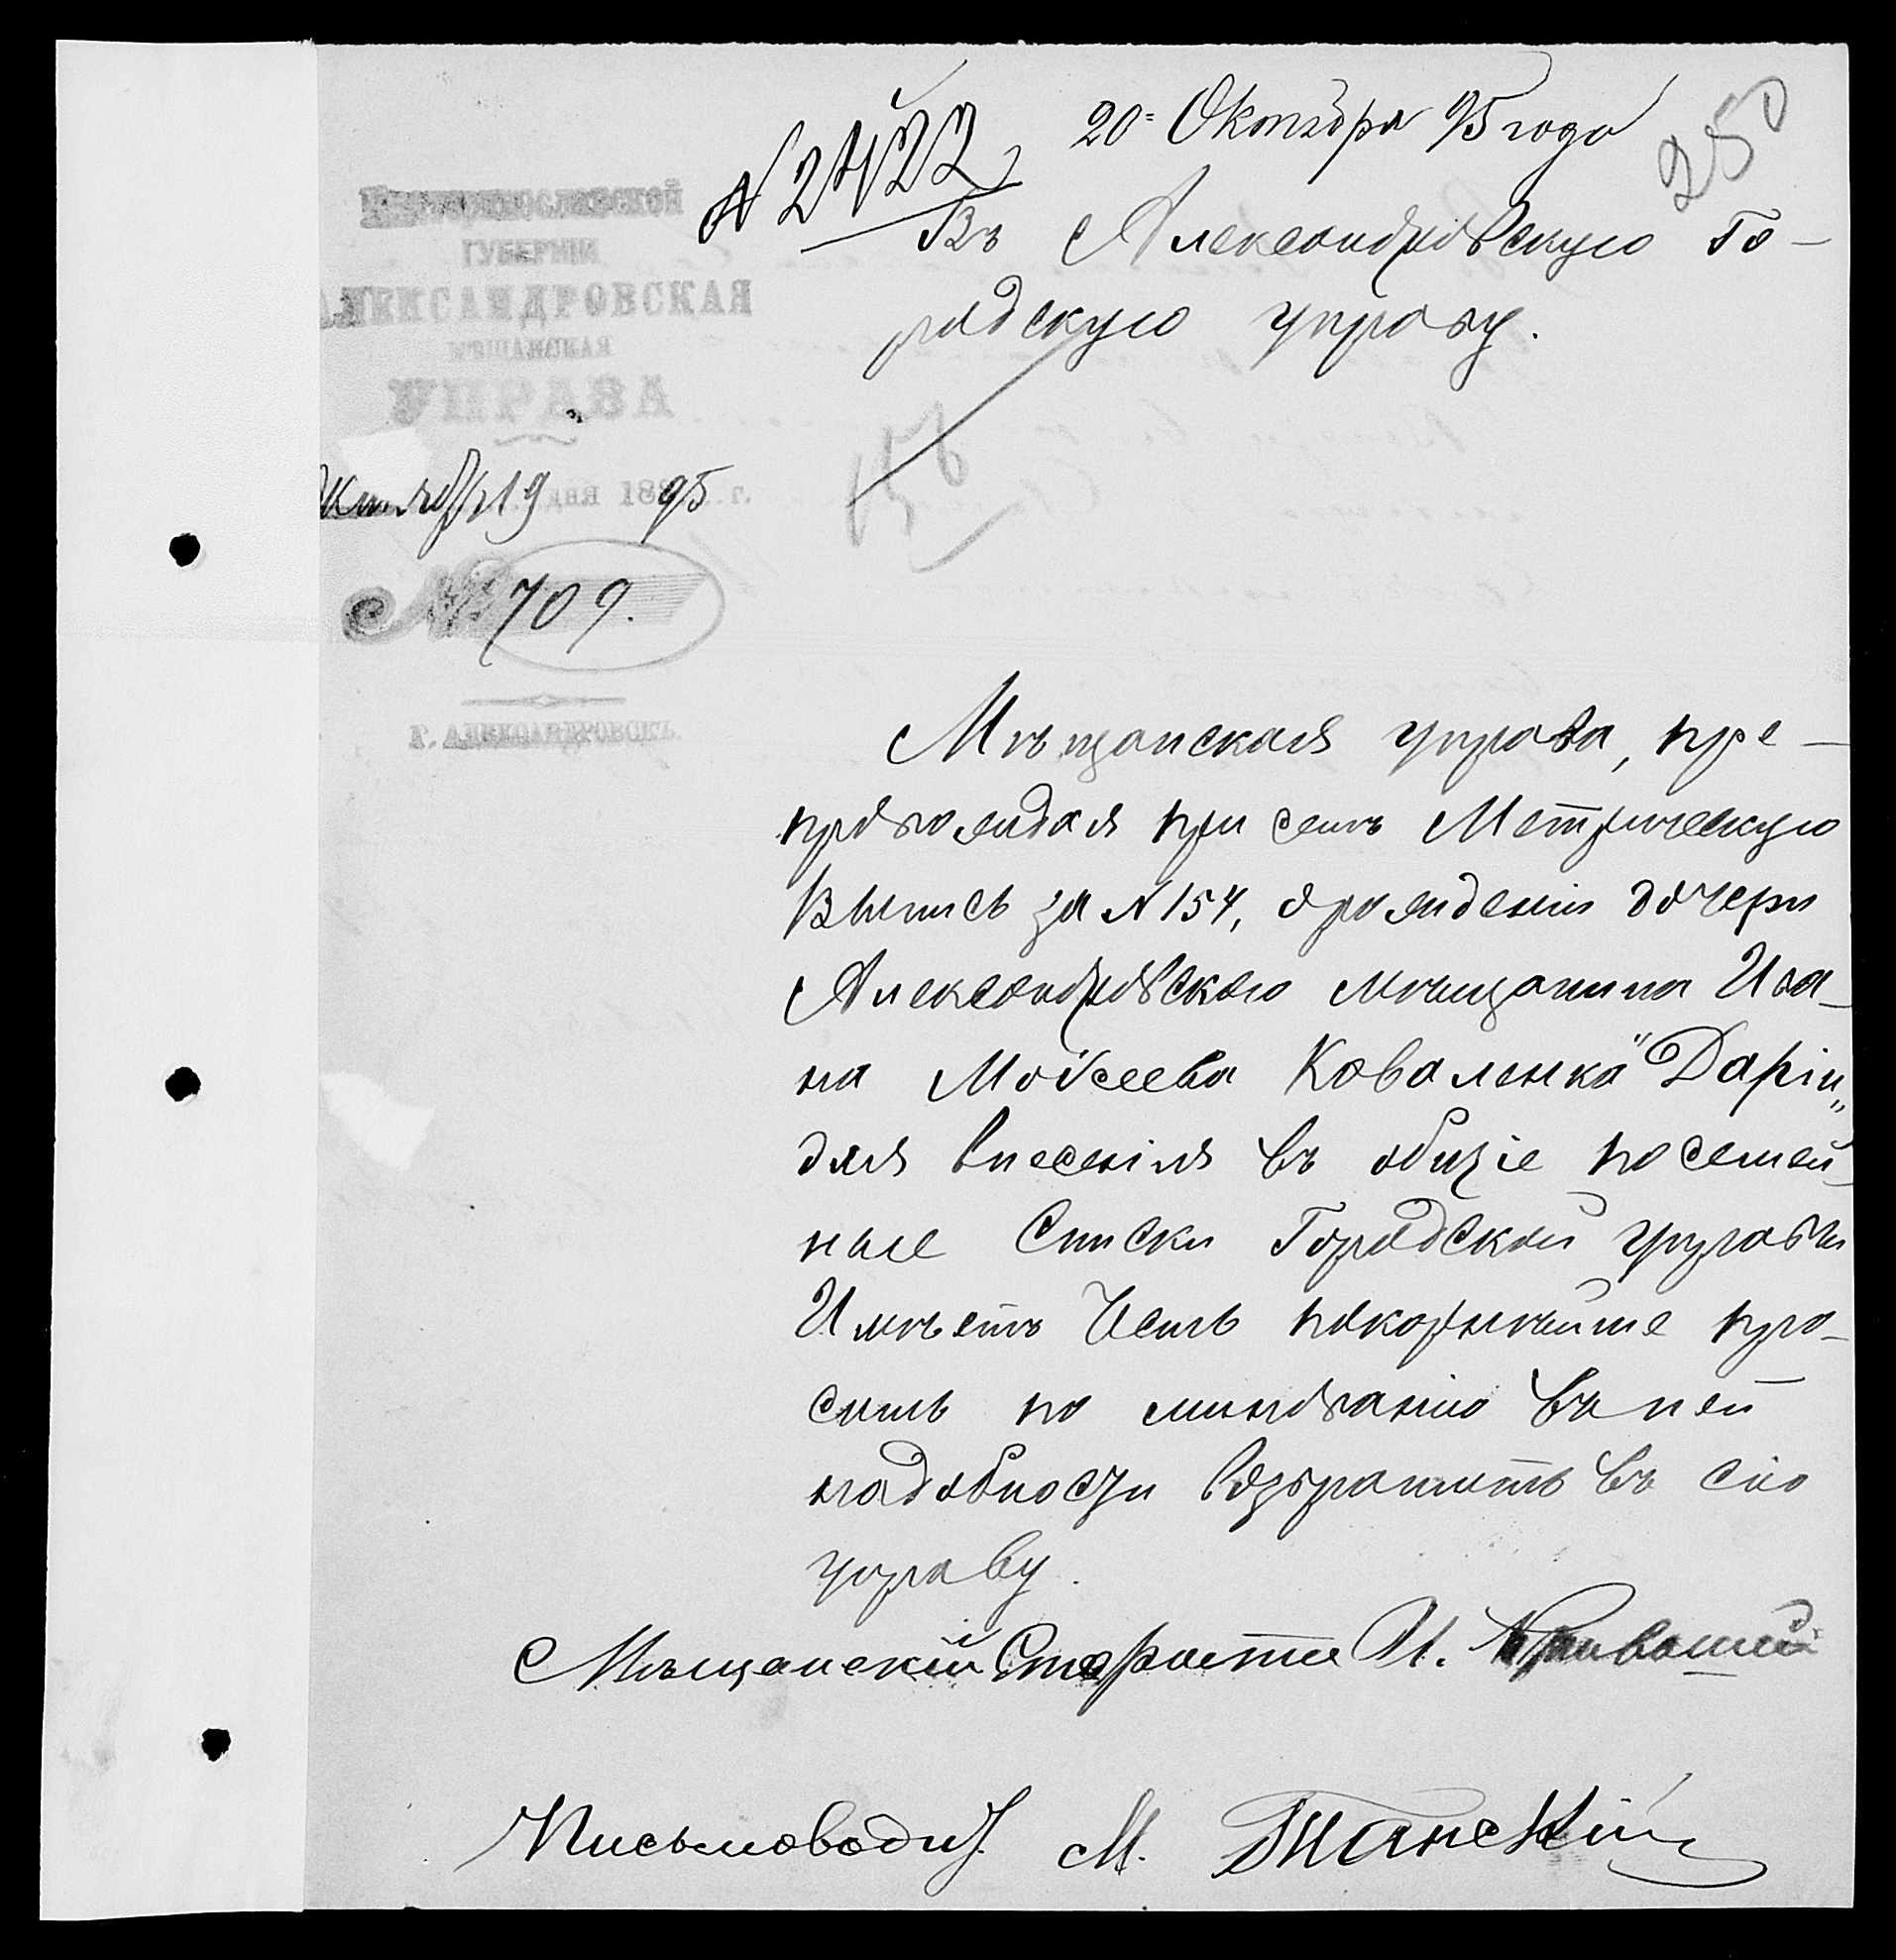 20 Октября 95 года
250
Екатеринославской
ГУБЕРНІИ
АЛЕКСАНДРОВСКАЯ
МѢЩАНСКАЯ
УПРАВА
Октября 19 дня 1895 г.
№ 709.
Г. АЛЕКСАНДРОВСКЪ.
Въ Александровскую Го-
родскую управу.
Мѣщанская управа, пре-
провождая при семъ Метрическую
Выпись за N 154, о рожденіи дочери
Александровскаго мѣщанина Ива-
на Мойсеева Коваленка "Даріи"
для внесенія въ общіе посемей-
ные Списки Городской управы
Имѣетъ Честь покорнѣйше про-
сить по минованію въ ней
надобности возвратить въ сію
управу.
Мѣщанскій Староста И.
Письмоводит. М.